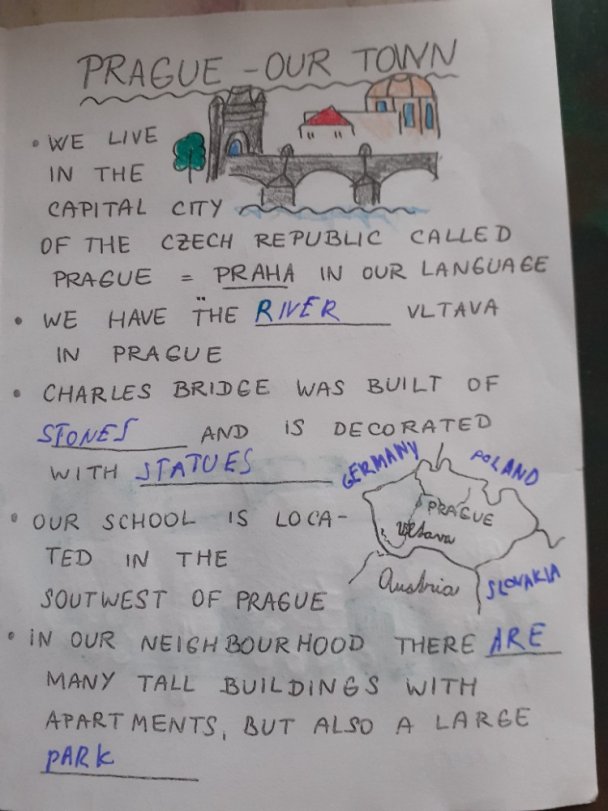 PRAGUE - OUR TOWN
• WE LIVE
IN THE
CAPITAL CITY
OF THE CZECH REPUBLIC CALLED
PRAGUE = PRAHA IN OUR LANGUAGE
• WE HAVE THE RIVER VLTAVA
IN PRAGUE
• CHARLES BRIDGE WAS BUILT OF
STONES AND IS DECORATED
WITH STATUES
GERMANY
POLAND
PRAGUE
Vltava
Austria
SLOVAKIA
• OUR SCHOOL IS LOCA-
TED IN THE
SOUTWEST OF PRAGUE
• IN OUR NEIGHBOURHOOD THERE ARE
MANY TALL BUILDINGS WITH
APARTMENTS, BUT ALSO A LARGE
PARK